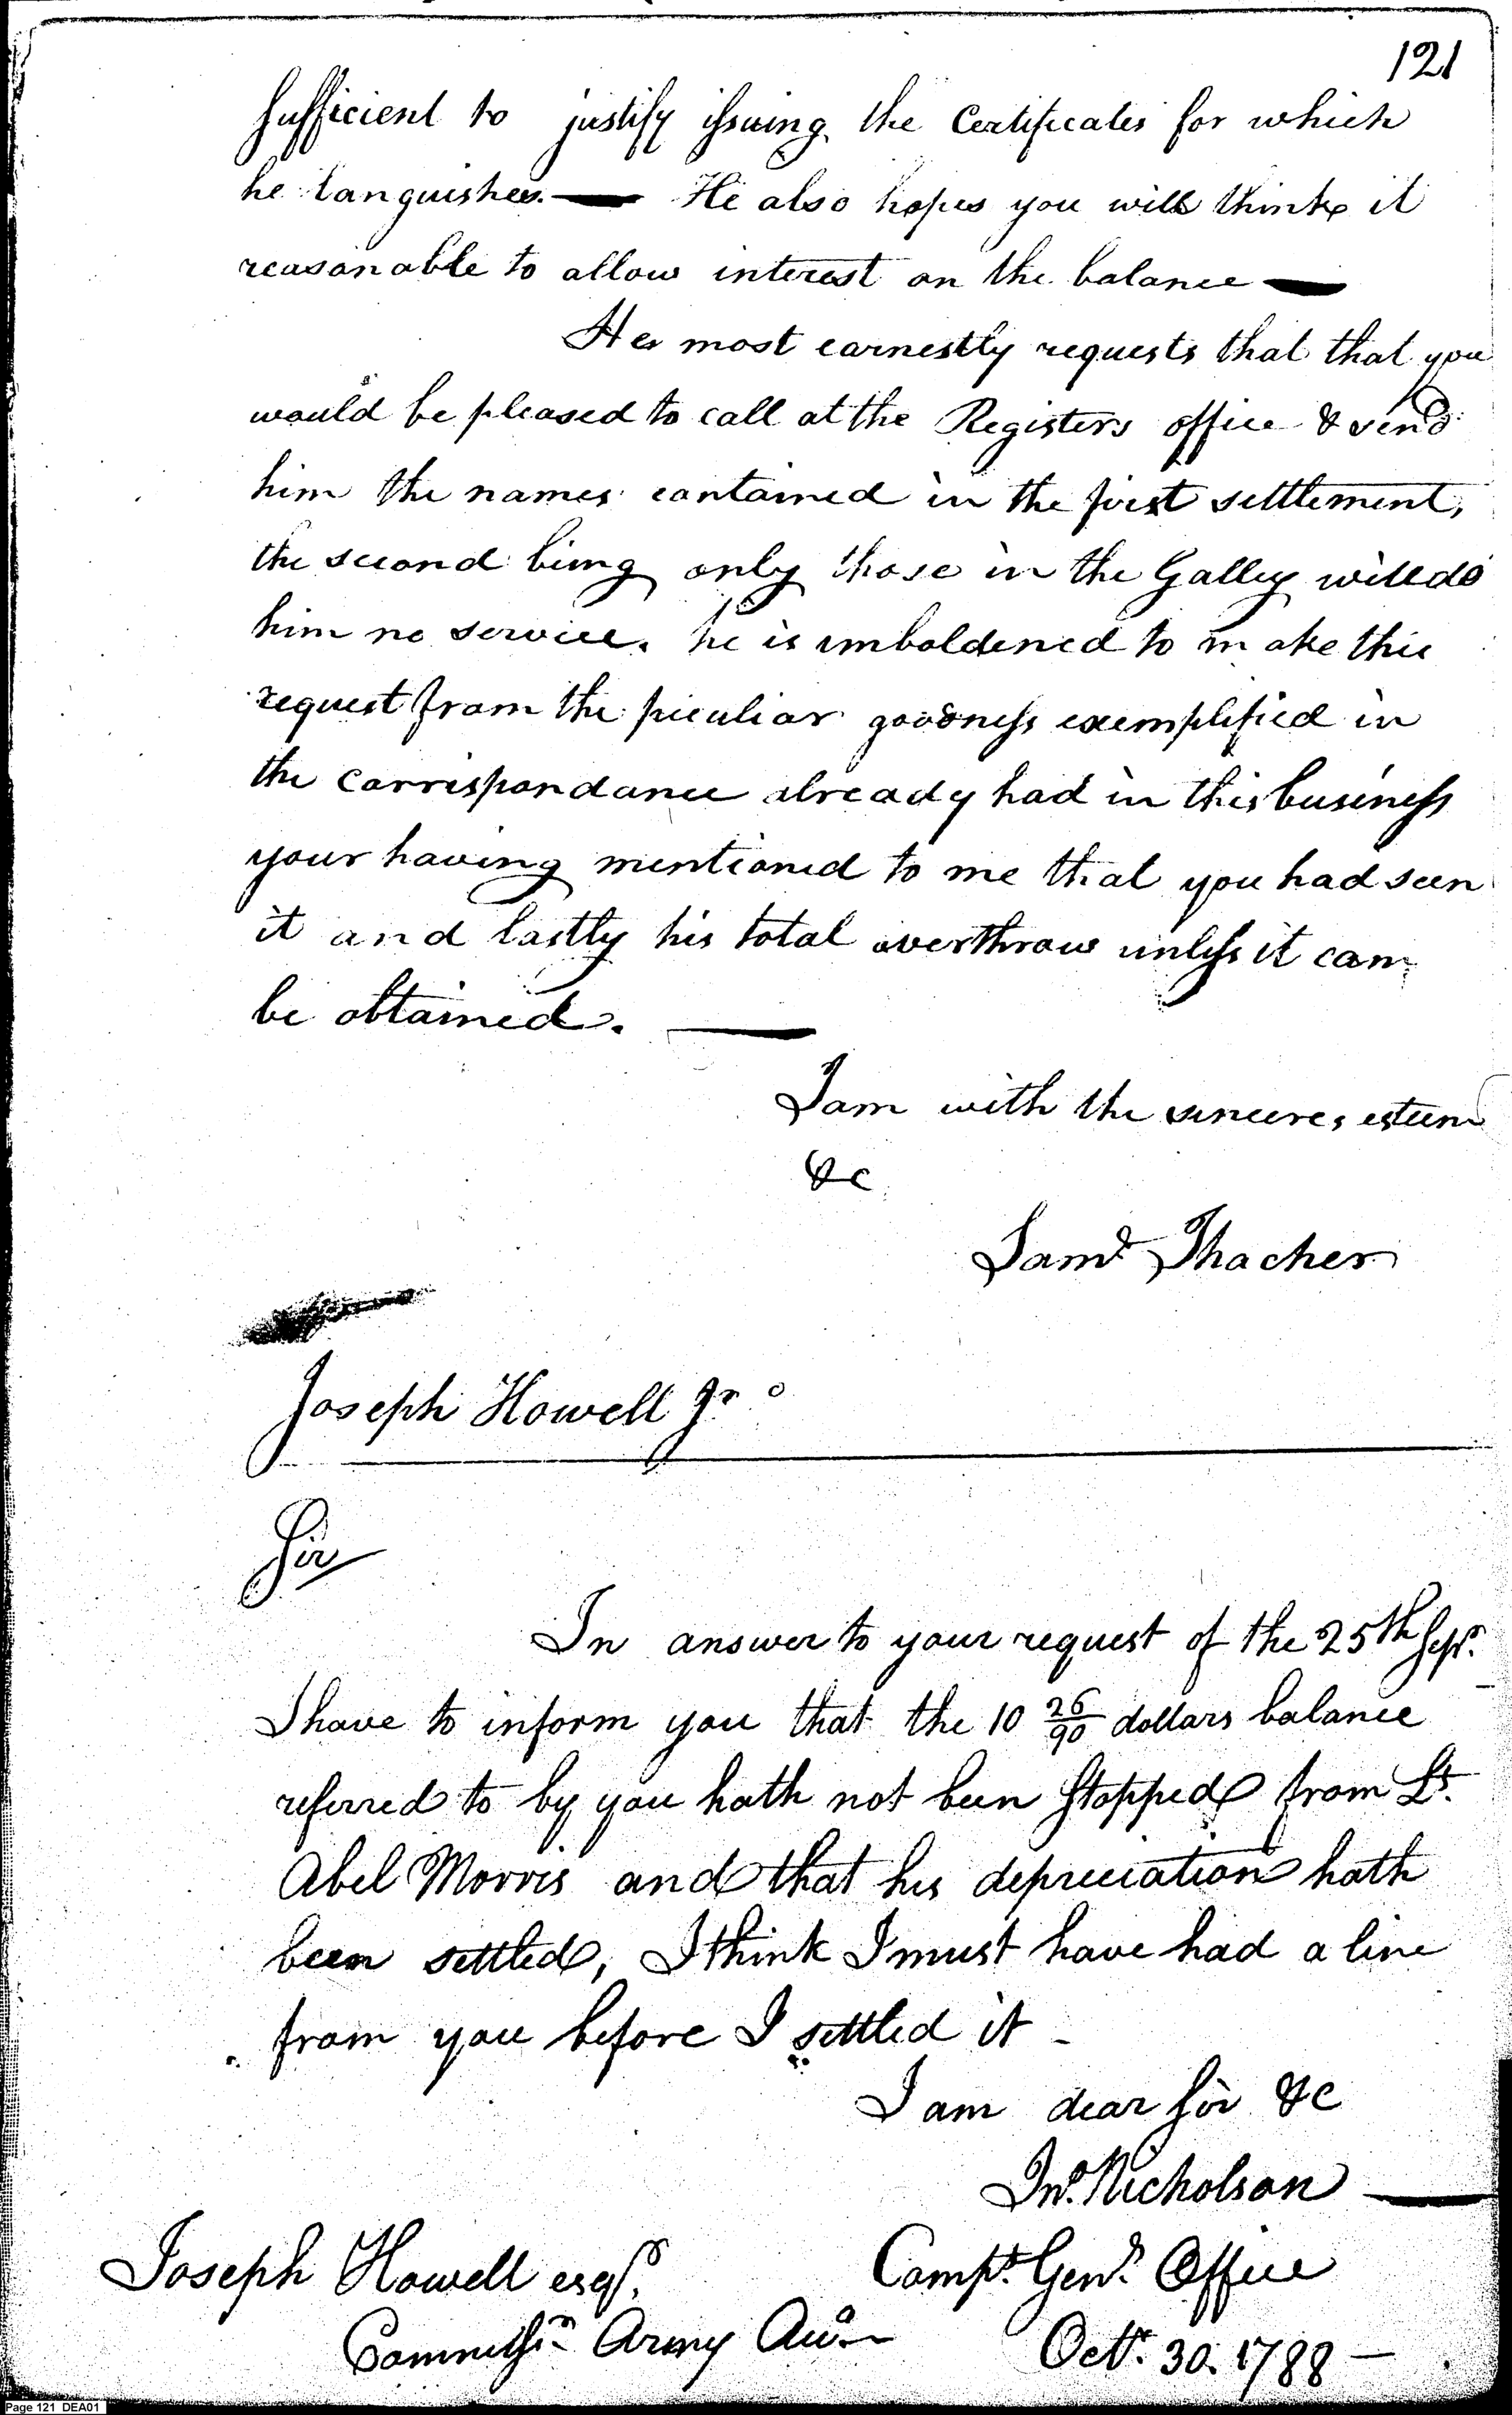 121
sufficient to justify issuing the Certificates for which
he languishes. — He also hopes you will think it
reasonable to allow interest on the balance —
He most earnestly requests that that you
would be pleased to call at the Registers office & send
him the names contained in the first settlement,
the second being only those in the Galley will do
him no service. he is imboldened to make this
request from the peculiar goodness exemplified in
the correspondance already had in this business
your having mentioned to me that you had seen
it and lastly his total overthrow unless it can
be obtained. —
I am with the sinceres esteem
&c
Saml Thacher
Joseph Howell Jr
Sir
In answer to your request of the 25th Sepr.
I have to inform you that the 10 26/90 dollars balance
referred to by you hath not been stopped from Lt.
Abel Morris and that his depreciation hath
been settled, I think I must have had a line
from you before I settled it -
I am dear sir &c
Jno. Nicholson —
Joseph Howell esqr. Compt. Genl. Office
Commissr Army Acts Octr. 30. 1788 —
Page 121 DEA01